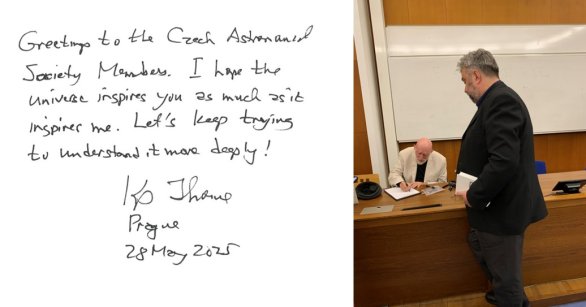 Greetings to the Czech Astronomical
Society Members. I hope the
universe inspires you as much as it
inspires me. Let's keep trying
to understand it more deeply!
Kip Thorne
Prague
28 May 2025